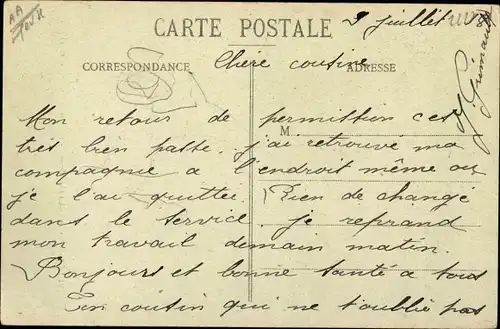 CARTE POSTALE
9 juillet
CORRESPONDANCE
Chère cousine
ADRESSE
M
Mon retour de permission c'est
très bien passé. j'ai retrouvé ma
compagnie a l'endroit même ou
je l'ai quittée. Rien de changé
dans le service. je reprand
mon travail demain matin.
Bonjours et bonne santé a tous
Ton cousin qui ne t'oublie pas